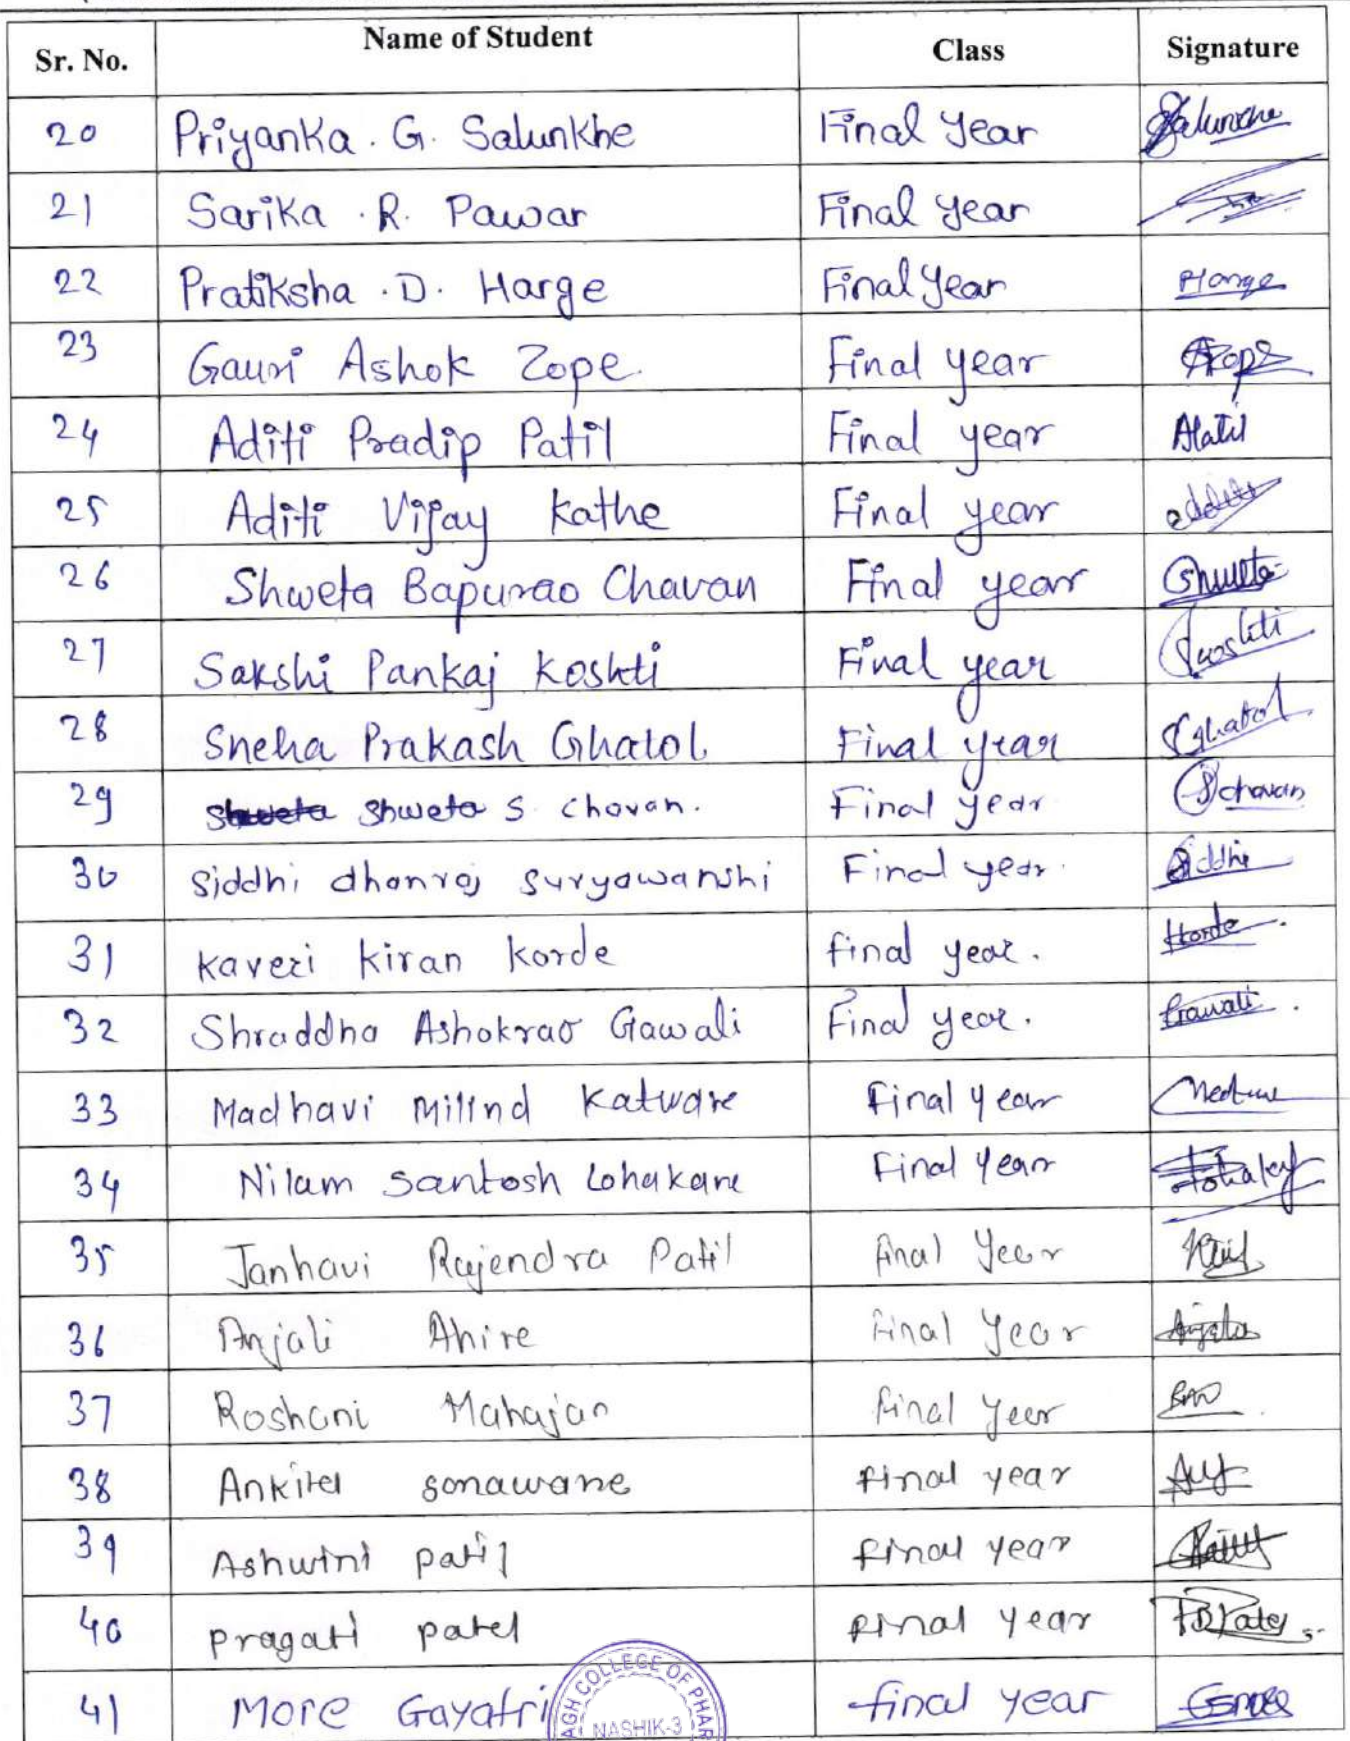 Sr. No. Name of Student Class Signature
20 Priyanka . G. Salunkhe Final Year Salunkhe
21 Sarika . R. Pawar Final year
22 Pratiksha . D. Harge Final Year Harge
23 Gauri Ashok Zope. Final year Zope
24 Aditi Pradip Patil Final year APatil
25 Aditi Vijay Kathe Final year
26 Shweta Bapurao Chavan Final year Shweta
27 Sakshi Pankaj Koshti Final year Skoshti
28 Sneha Prakash Ghatol Final year SGhatol
29 Shweta Shweta S. Chavan. Final year Schavan
30 Siddhi dhanraj suryawanshi Final year. Siddhi
31 Kaveri Kiran Korde final year. Korde
32 Shraddha Ashokrao Gawali Final year. Gawali
33 Madhavi Milind Katware Final year
34 Nilam Santosh Lohakare Final year
35 Janhavi Rajendra Patil final Year
36 Anjali Ahire Final Year
37 Roshani Mahajan final Year
38 Ankita sonawane final year
39 Ashwini patil final year
40 pragati patel final year PBPatel
41 More Gayatri final year
AGH COLLEGE OF PHAR
NASHIK-3